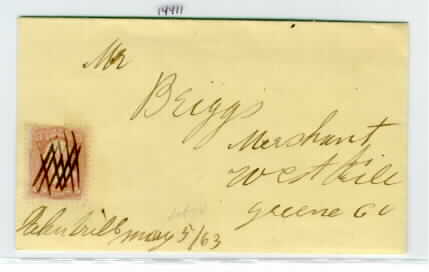 14911
Mr
Briggs
Merchant
Westkill
Greene Co
may 5/63